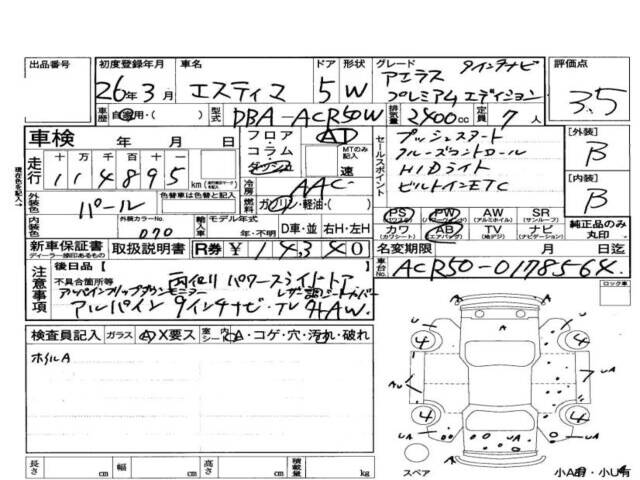 出品番号
初度登録年月 車名 ドア 形状 グレード 評価点
26年3月 エスティマ 5 W アエラス 9インチナビ
プレミアムエディション 3.5
車歴 自家用・( ) 型式 DBA-ACR50W 排気量 2400cc 定員 7人
車検 年 月 日
フロア AD
コラム
ダッシュ
MTのみ記入
速
セールスポイント
プッシュスタート
クルーズコントロール
HIDライト
ビルトインETC
[外装]
B
[内装]
B
走行 十 万 千 百 十 一
114895 km
冷房 AAC
燃料 ガソリン・軽油・( )
現在色を記入→
外装色 パール 色替車は色替と記入
内装色 外装カラーNo. 070
輸入車 モデル年式 年・不明 D車・並 右H・左H
PS (パワステ) PW (パワーウィンドウ) AW (アルミホイル) SR (サンルーフ)
カワ (カワシート) AB (エアバック) TV (地デジ) ナビ (ナビゲーション)
純正品のみ丸印
新車保証書 ディーラー捺印あるもの 取扱説明書 R券 ¥ 14,340
名変期限 月 日迄
車台No. ACR50-0178564
注意事項
後日品【 】
不具合箇所等
両側パワースライドドア
アルパインフリップダウンモニター レザー調シートカバー
アルパイン9インチナビ・TV
ロック車
検査員記入 ガラス Ⓐ X要ス 室内シート A・コゲ・穴・汚れ・破れ
ホイルA
長さ cm 幅 cm 高さ cm 積載量 kg
スペア
小A有・小U有